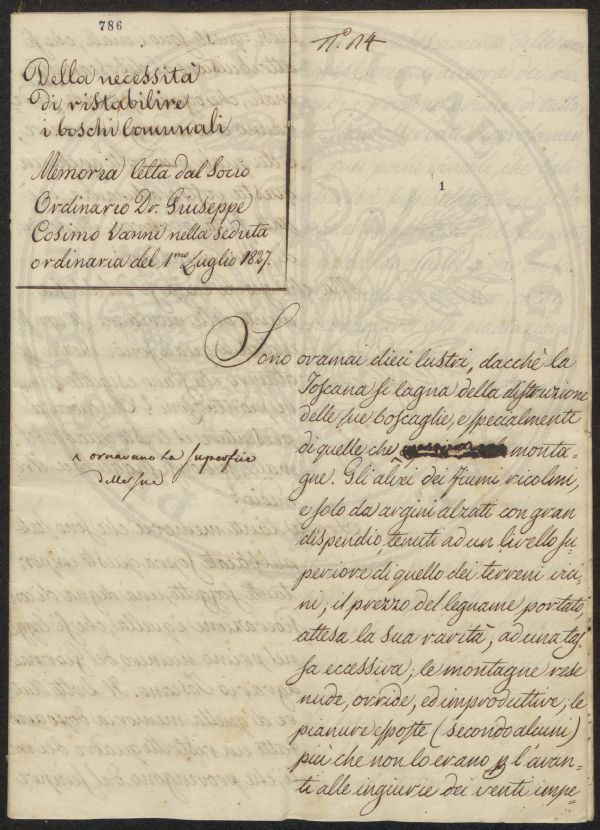 786
N.º 114
Della necessità
di ristabilire
i boschi Comunali
Memoria letta dal Socio
Ordinario Dr. Giuseppe
Cosimo Vanni nella seduta
ordinaria del 1mo Luglio 1827.
1
Sono oramai dieci lustri, dacchè la
Toscana si lagna della distruzione
delle sue boscaglie, e specialmente
di quelle che monta-
x ornavano la superficie
delle sue
gne. Gli alvei dei Fiumi ricolmi,
e solo da argini alzati con gran
dispendio, tenuti ad un livello su-
periore di quello dei terreni vici-
ni; il prezzo del legname portato,
attesa la sua rarità, ad una tas-
sa eccessiva; le montagne rese
nude, orride, ed improduttive; le
pianure esposte (secondo alcuni)
più che non lo erano l'avan-
ti alle ingiurie dei venti impe